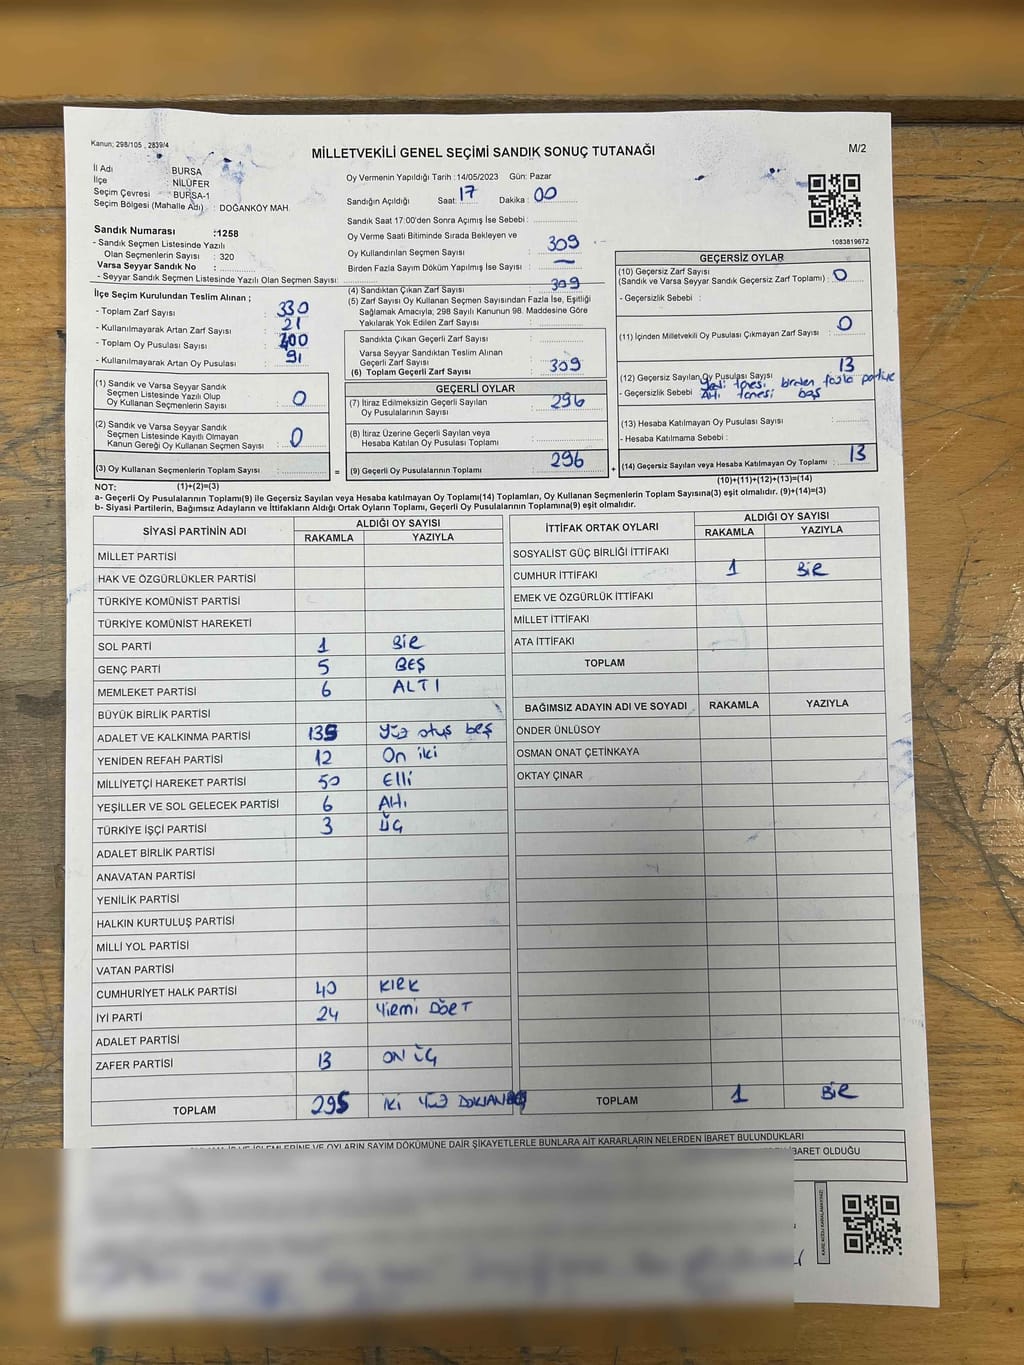 Kanun; 298/105 , 2839/4
MİLLETVEKİLİ GENEL SEÇİMİ SANDIK SONUÇ TUTANAĞI
M/2
İl Adı : BURSA
İlçe : NİLÜFER
Seçim Çevresi : BURSA-1
Seçim Bölgesi (Mahalle Adı) : DOĞANKÖY MAH.
Oy Vermenin Yapıldığı Tarih : 14/05/2023 Gün: Pazar
Sandığın Açıldığı Saat: 17 Dakika : 00
Sandık Saat 17:00'den Sonra Açımış İse Sebebi :
Oy Verme Saati Bitiminde Sırada Bekleyen ve
Oy Kullandırılan Seçmen Sayısı : 309
Birden Fazla Sayım Döküm Yapılmış İse Sayısı : —
Sandık Numarası :1258
- Sandık Seçmen Listesinde Yazılı
Olan Seçmenlerin Sayısı : 320
Varsa Seyyar Sandık No :
- Seyyar Sandık Seçmen Listesinde Yazılı Olan Seçmen Sayısı:
1083819672
İlçe Seçim Kurulundan Teslim Alınan ;
- Toplam Zarf Sayısı : 330
- Kullanılmayarak Artan Zarf Sayısı : 21
- Toplam Oy Pusulası Sayısı : 400
- Kullanılmayarak Artan Oy Pusulası : 91
(1) Sandık ve Varsa Seyyar Sandık
Seçmen Listesinde Yazılı Olup
Oy Kullanan Seçmenlerin Sayısı : 0
(2) Sandık ve Varsa Seyyar Sandık
Seçmen Listesinde Kayıtlı Olmayan
Kanun Gereği Oy Kullanan Seçmen Sayısı : 0
(3) Oy Kullanan Seçmenlerin Toplam Sayısı :
(4) Sandıktan Çıkan Zarf Sayısı : 309
(5) Zarf Sayısı Oy Kullanan Seçmen Sayısından Fazla İse, Eşitliği
Sağlamak Amacıyla; 298 Sayılı Kanunun 98. Maddesine Göre
Yakılarak Yok Edilen Zarf Sayısı :
Sandıkta Çıkan Geçerli Zarf Sayısı :
Varsa Seyyar Sandıktan Teslim Alınan
Geçerli Zarf Sayısı :
(6) Toplam Geçerli Zarf Sayısı : 309
GEÇERLİ OYLAR
(7) İtiraz Edilmeksizin Geçerli Sayılan
Oy Pusulalarının Sayısı : 296
(8) İtiraz Üzerine Geçerli Sayılan veya
Hesaba Katılan Oy Pusulası Toplamı :
= (9) Geçerli Oy Pusulalarının Toplamı : 296 +
GEÇERSİZ OYLAR
(10) Geçersiz Zarf Sayısı
(Sandık ve Varsa Seyyar Sandık Geçersiz Zarf Toplamı) : 0
- Geçersizlik Sebebi :
(11) İçinden Milletvekili Oy Pusulası Çıkmayan Zarf Sayısı : 0
(12) Geçersiz Sayılan Oy Pusulası Sayısı : 13
- Geçersizlik Sebebi : Yedi tanesi birden fazla partiye
Altı tanesi boş
(13) Hesaba Katılmayan Oy Pusulası Sayısı :
- Hesaba Katılmama Sebebi :
(14) Geçersiz Sayılan veya Hesaba Katılmayan Oy Toplamı : 13
NOT: (1)+(2)=(3)
(10)+(11)+(12)+(13)=(14)
a- Geçerli Oy Pusulalarının Toplamı(9) ile Geçersiz Sayılan veya Hesaba katılmayan Oy Toplamı(14) Toplamları, Oy Kullanan Seçmenlerin Toplam Sayısına(3) eşit olmalıdır. (9)+(14)=(3)
b- Siyasi Partilerin, Bağımsız Adayların ve İttifakların Aldığı Ortak Oyların Toplamı, Geçerli Oy Pusulalarının Toplamına(9) eşit olmalıdır.
SİYASİ PARTİNİN ADI ALDIĞI OY SAYISI
RAKAMLA YAZIYLA
MİLLET PARTİSİ
HAK VE ÖZGÜRLÜKLER PARTİSİ
TÜRKİYE KOMÜNİST PARTİSİ
TÜRKİYE KOMÜNİST HAREKETİ
SOL PARTİ 1 BİR
GENÇ PARTİ 5 BEŞ
MEMLEKET PARTİSİ 6 ALTI
BÜYÜK BİRLİK PARTİSİ
ADALET VE KALKINMA PARTİSİ 135 Yüz otuş beş
YENİDEN REFAH PARTİSİ 12 On iki
MİLLİYETÇİ HAREKET PARTİSİ 50 Elli
YEŞİLLER VE SOL GELECEK PARTİSİ 6 Altı
TÜRKİYE İŞÇİ PARTİSİ 3 ÜÇ
ADALET BİRLİK PARTİSİ
ANAVATAN PARTİSİ
YENİLİK PARTİSİ
HALKIN KURTULUŞ PARTİSİ
MİLLİ YOL PARTİSİ
VATAN PARTİSİ
CUMHURİYET HALK PARTİSİ 40 KIRK
İYİ PARTİ 24 Yirmi DÖRT
ADALET PARTİSİ
ZAFER PARTİSİ 13 ON ÜÇ
TOPLAM 295 iki Yüz DOKSAN
İTTİFAK ORTAK OYLARI ALDIĞI OY SAYISI
RAKAMLA YAZIYLA
SOSYALİST GÜÇ BİRLİĞİ İTTİFAKI
CUMHUR İTTİFAKI 1 BİR
EMEK VE ÖZGÜRLÜK İTTİFAKI
MİLLET İTTİFAKI
ATA İTTİFAKI
TOPLAM
BAĞIMSIZ ADAYIN ADI VE SOYADI RAKAMLA YAZIYLA
ÖNDER ÜNLÜSOY
OSMAN ONAT ÇETİNKAYA
OKTAY ÇINAR
TOPLAM 1 BİR
İŞLEMLERİNE VE OYLARIN SAYIM DÖKÜMÜNE DAİR ŞİKAYETLERLE BUNLARA AİT KARARLARIN NELERDEN İBARET BULUNDUKLARI
İBARET OLDUĞU